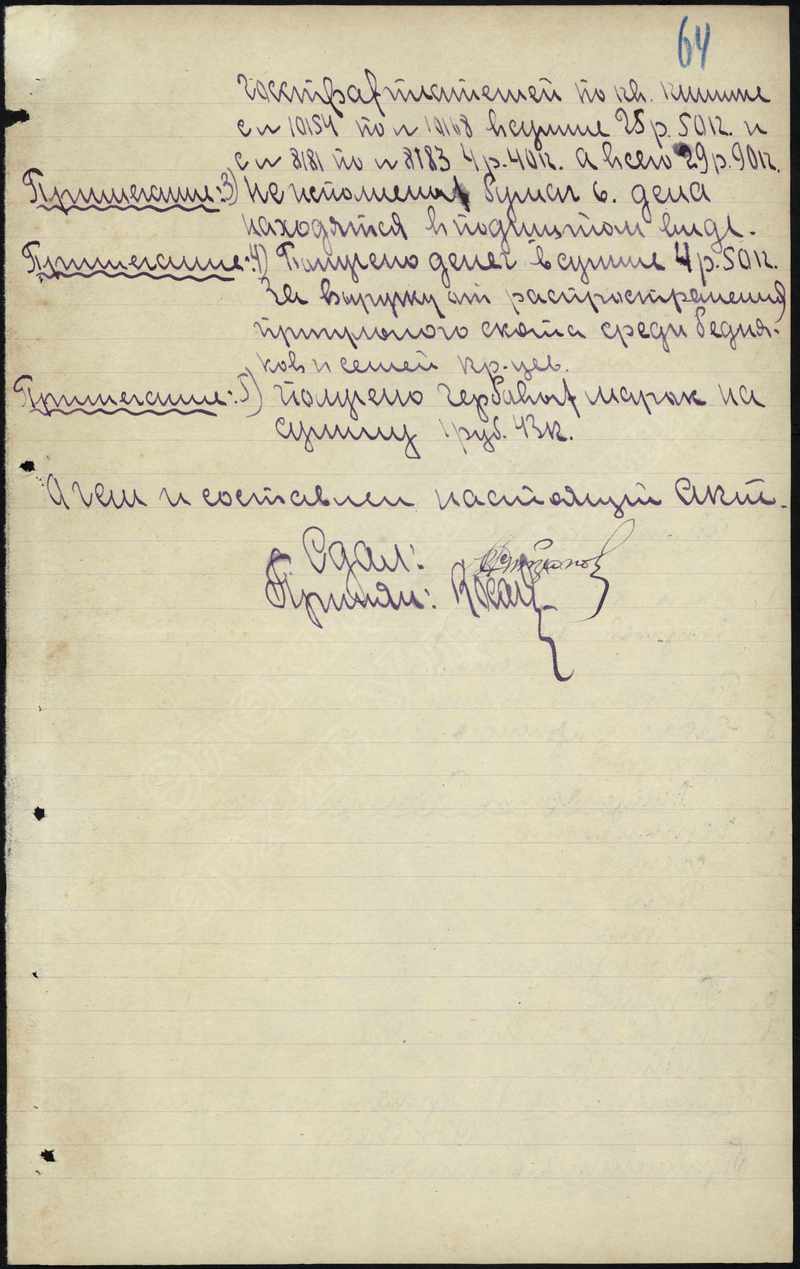 64
по кв. книжке
с № 10154 по № 10168 в сумме 25 р. 50 к. и
с № 8181 по № 8183 4 р. 40 к. а всего 29 р. 90 к.
Примечание: 3) Не исполнены бумаг 6. дела
находятся в подшитом виде.
Примечание: 4) Получено денег в сумме 4 р. 50 к.
За выручку от распространения
скота среди бедня-
ков и семей кр-цев.
Примечание: 5) Получено гербовых марок на
сумму 1 руб. 43 к.
О чем и составлен настоящий Акт.
Сдал:
Принял: